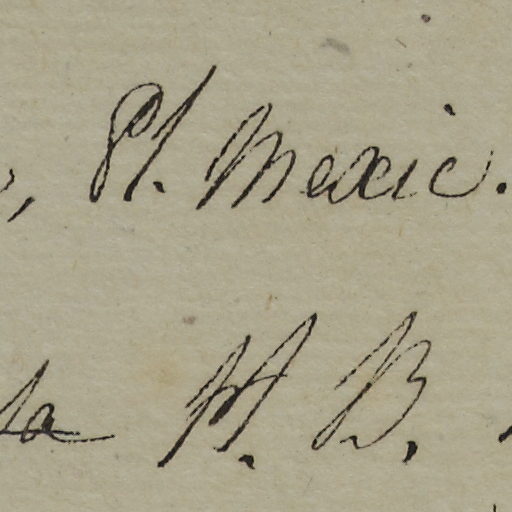 , Pl. Mexic.
ta H. B.